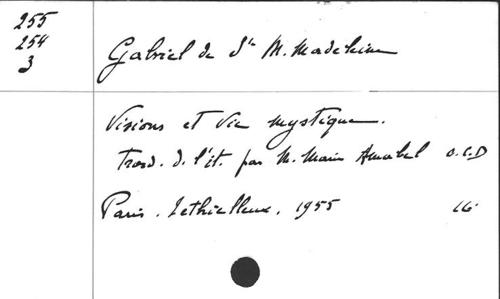 255
254
3
Gabriel de Ste M. Madeleine
Visions et vie mystique.
Trad. d. l'it. par M. Marie Amabel O.C.D
Paris. Lethielleux, 1955 16°